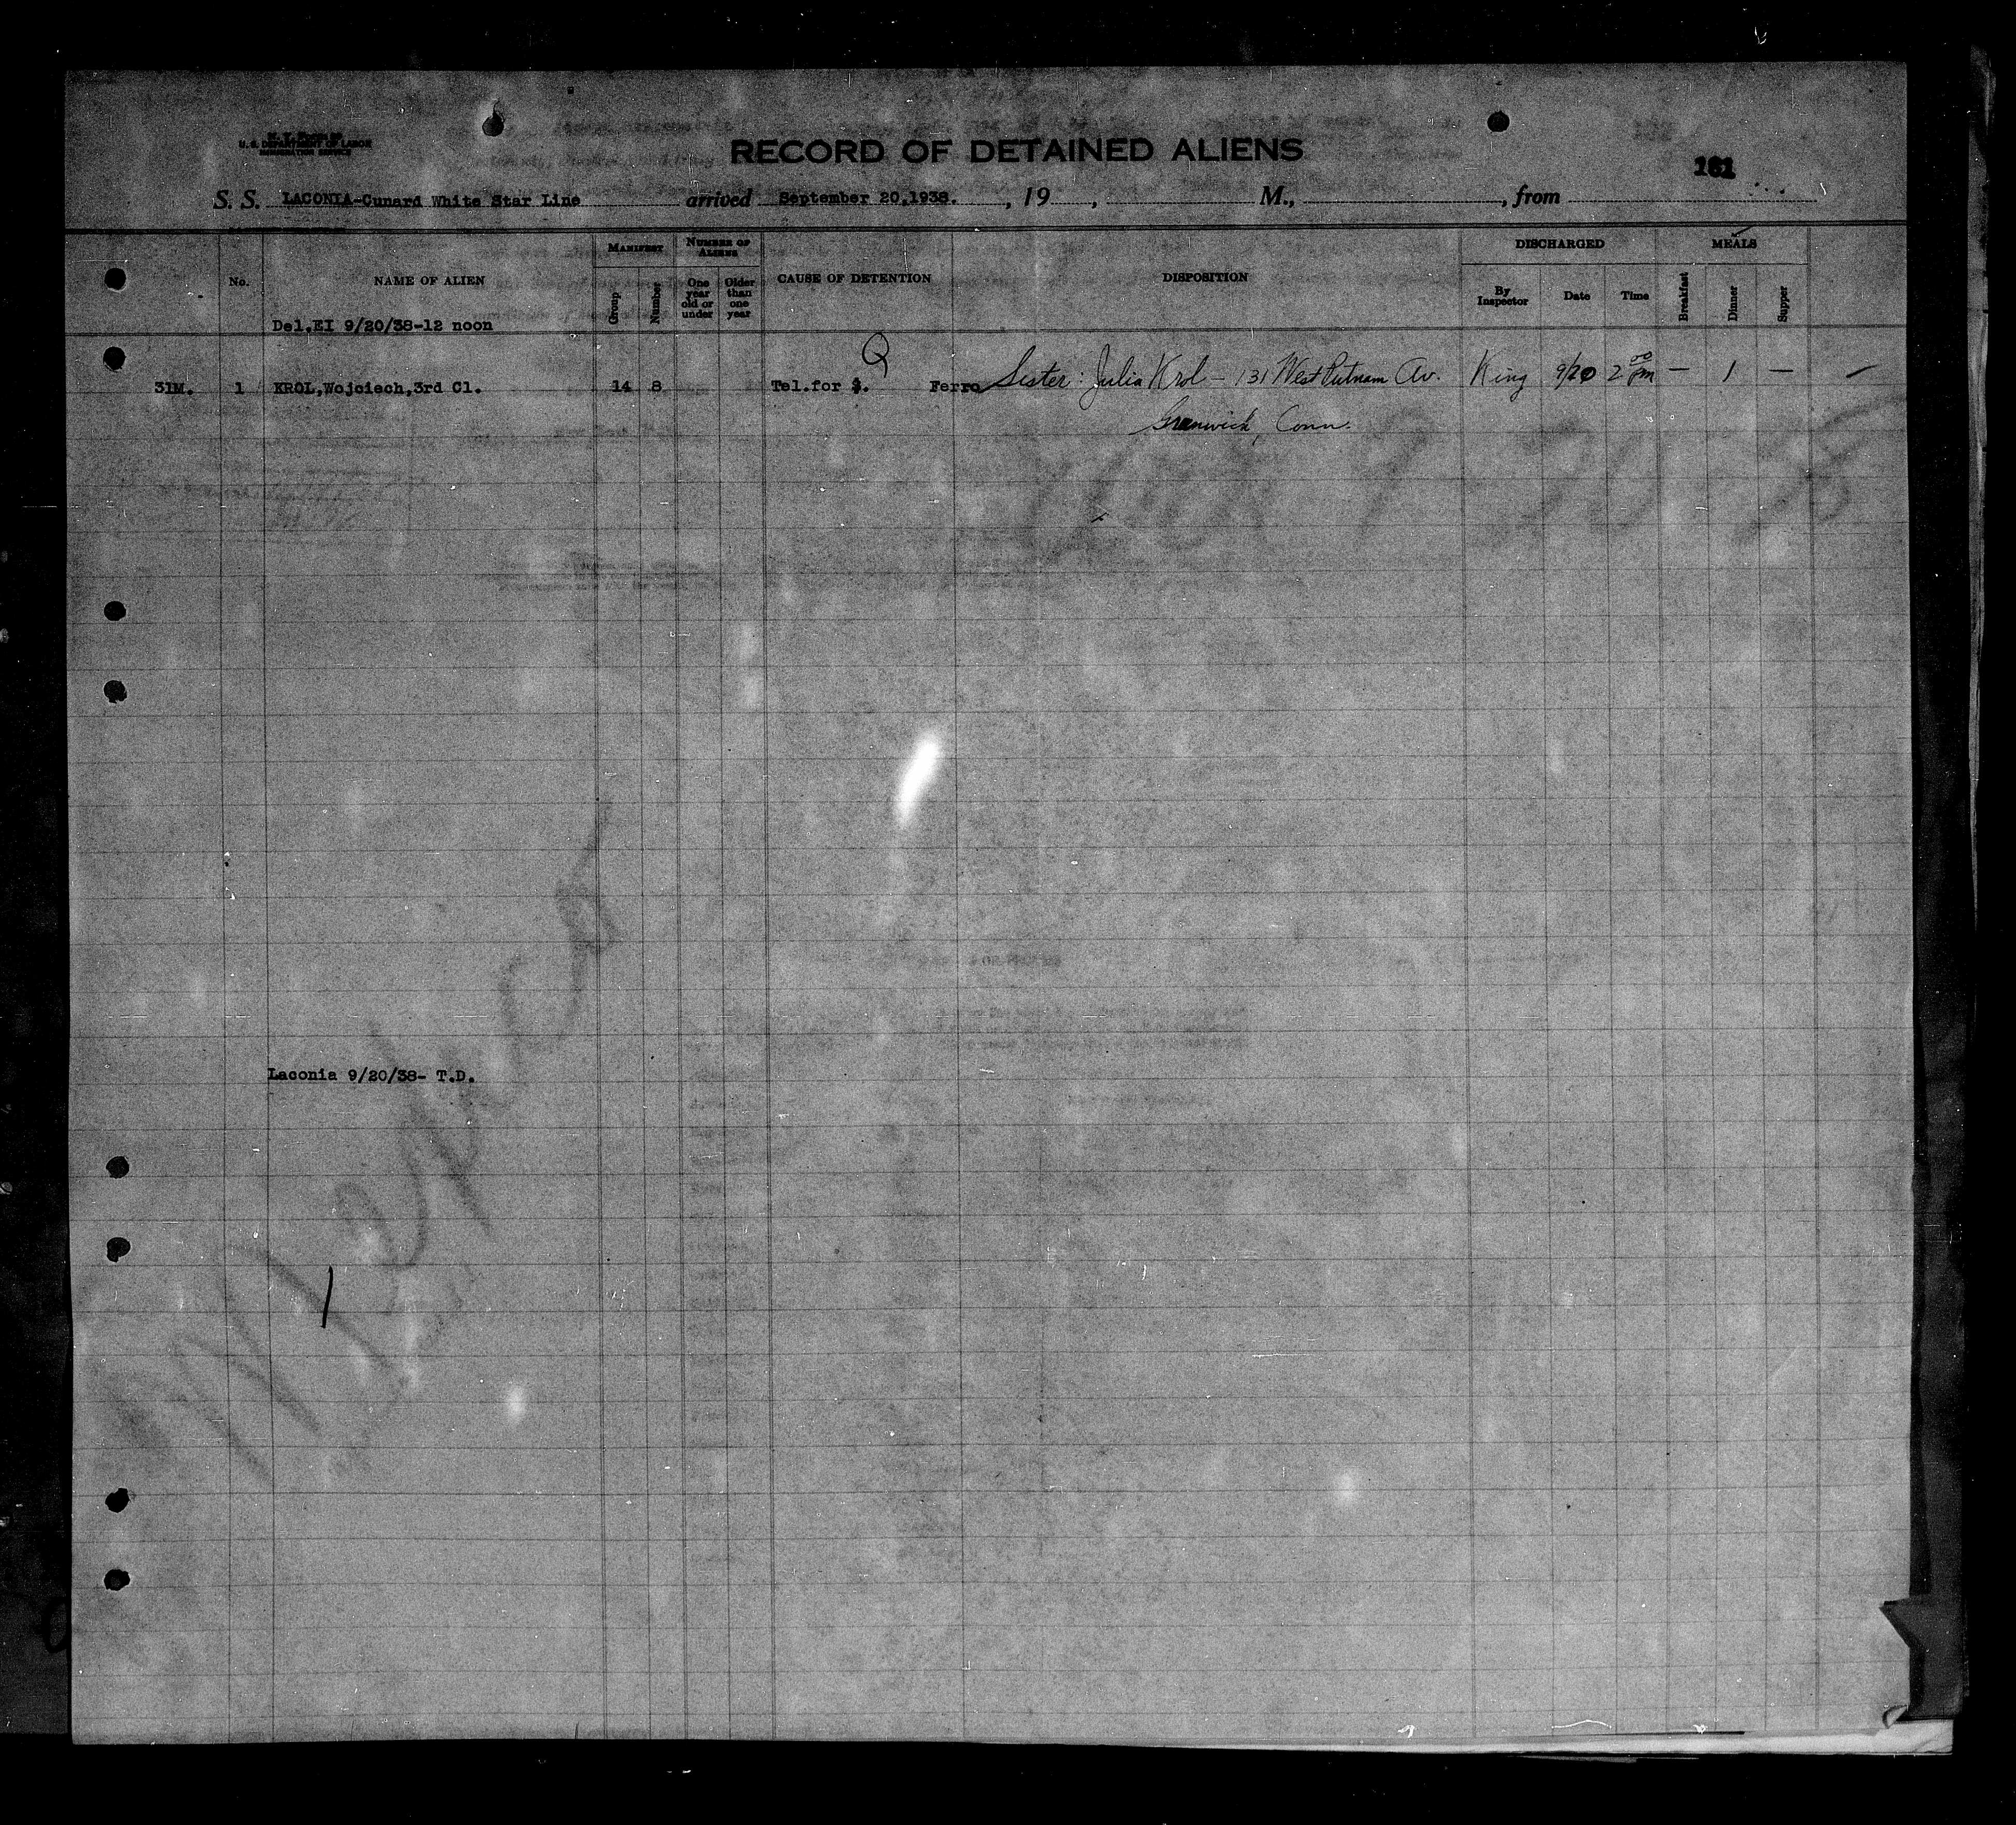 U. S. DEPARTMENT OF LABOR
IMMIGRATION SERVICE
RECORD OF DETAINED ALIENS
181
S. S. LACONIA-Cunard White Star Line arrived September 20,1938. , 19 , M., , from
No. NAME OF ALIEN MANIFEST Group Number NUMBER OF ALIENS One year old or under Older than one year CAUSE OF DETENTION DISPOSITION DISCHARGED By Inspector Date Time MEALS Breakfast Dinner Supper
Del.EI 9/20/38-12 noon
Q
31M. 1 KROL,Wojciech,3rd Cl. 14 8 Tel.for $. Ferro Sister: Julia Krol - 131 West Putnam Av. King 9/20 2 00 pm — 1 — —
Greenwich, Conn.
Laconia 9/20/38- T.D.